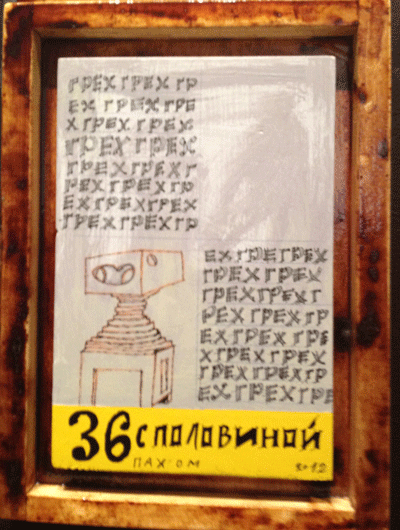 ГРЕХ ГРЕХ ГР
ЕХ ГРЕХ ГРЕ
Х ГРЕХ ГРЕХ
ГРЕХ ГРЕХ
ГРЕХ ГРЕХ Г
РЕХ ГРЕХ ГР
ЕХ ГРЕХ ГРЕХ
ГРЕХ ГРЕХ ГР
ЕХ ГРЕ ГРЕХ
ГРЕХ ГРЕХ
ГРЕХ ГРЕХ Г
РЕХ ГРЕХ ГР
ЕХ ГРЕХ ГРЕ
Х ГРЕХ ГРЕХ
ГРЕХ ГРЕХ ГР
ЕХ ГРЕХ ГРЕ
36 С ПОЛОВИНОЙ
ПАХ-ОМ